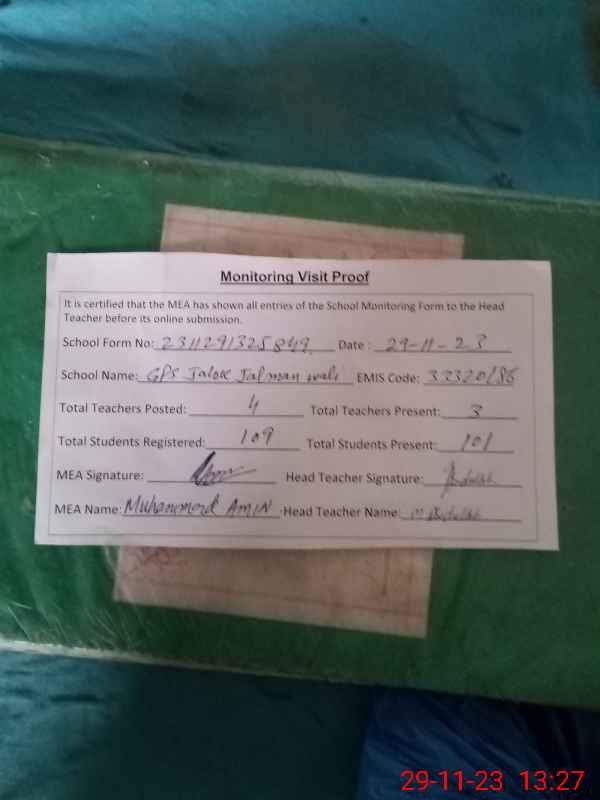 Monitoring Visit Proof
It is certified that the MEA has shown all entries of the School Monitoring Form to the Head
Teacher before its online submission.
School Form No: 2311291325849 Date : 29-11-23
School Name: GPS Jalwali EMIS Code: 32320186
Total Teachers Posted: 4 Total Teachers Present: 3
Total Students Registered: 109 Total Students Present: 101
MEA Signature: Head Teacher Signature: Abdullah
MEA Name: Muhammad AMIN Head Teacher Name: M Abdullah
29-11-23 13:27